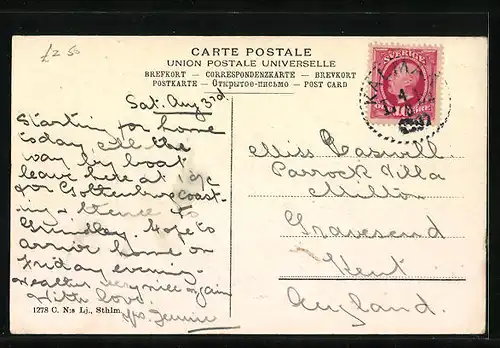 £2 50
CARTE POSTALE
UNION POSTALE UNIVERSELLE
BREFKORT – CORRESPONDENZKARTE – BREVKORT
POSTKARTE – Открытое-письмо – POST CARD
Sat. Aug 3rd
Starting for home
today, all the
way by boat
leave here at
for Gottenburg coast-
ing & thence to
Grimsley. Hope to
arrive home on
Friday evening.
Weather very nice again
With love.
yrs. Jennie
1278 C. N:s Lj., Sthlm.
KALMAR
4
Miss Caswell
Parrock Villa
Milton
Gravesend
Kent
England.